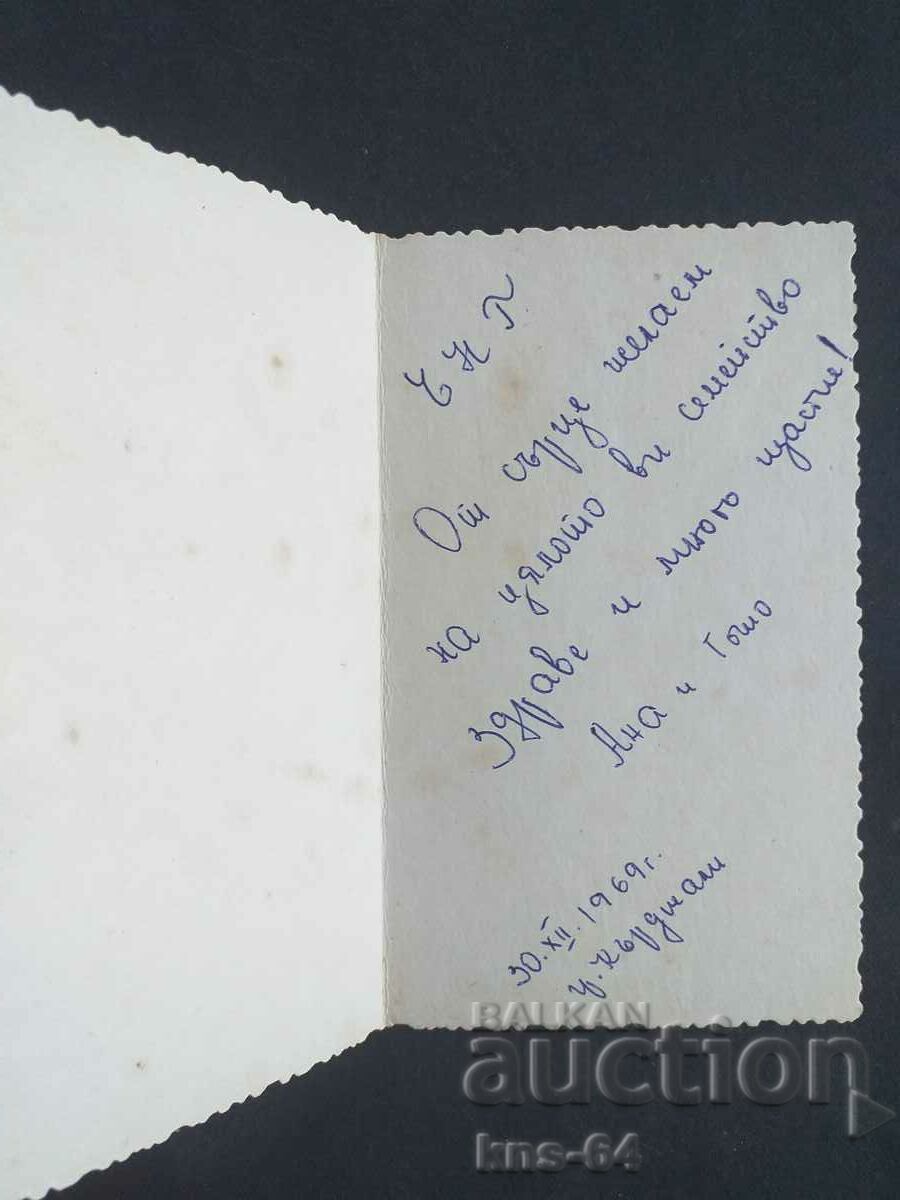 Ч Н Г
От сърце желаем
на цялото ви семейство
Здраве и много щастие!
Ана и Гошо
30.XII.1969г.
гр. Кърджали
BALKAN
auction
kns-64